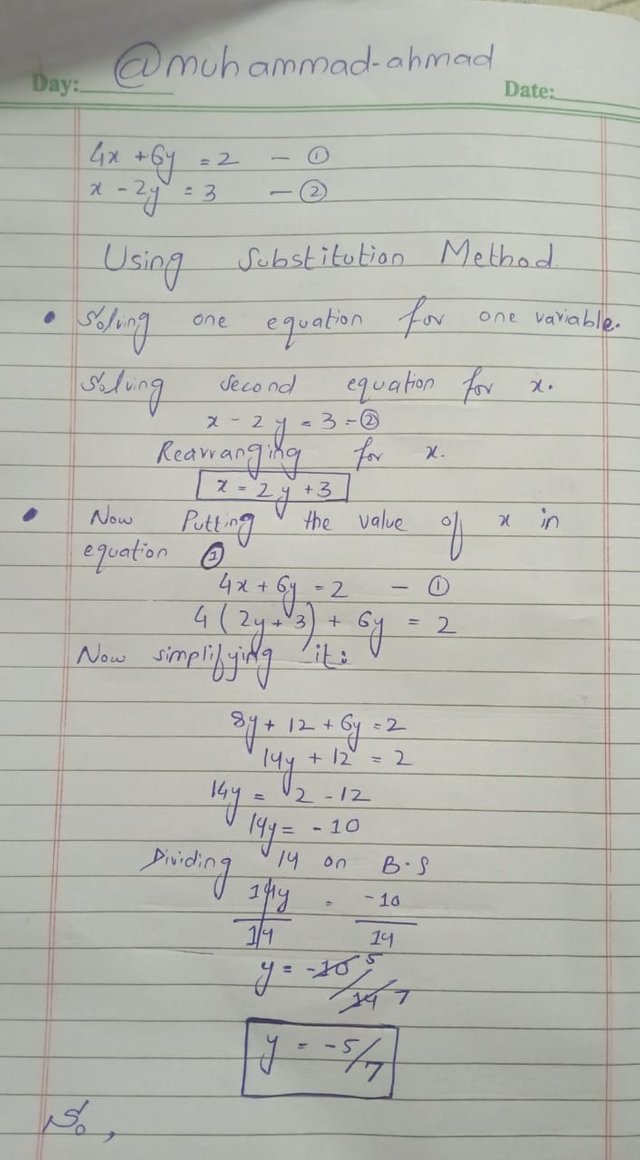 @muhammad-ahmad
Day: Date:
4x + 6y = 2 - ①
x - 2y = 3 - ②
Using Substitution Method
• Solving one equation for one variable.
Solving second equation for x.
x - 2y = 3 - ②
Rearranging for x.
x = 2y + 3
• Now Putting the value of x in
equation ①
4x + 6y = 2 - ①
4(2y + 3) + 6y = 2
Now simplifying it:
8y + 12 + 6y = 2
14y + 12 = 2
14y = 2 - 12
14y = -10
Dividing 14 on B.S
14y/14 = -10/14
y = -10 5/14 7
y = -5/7
So,